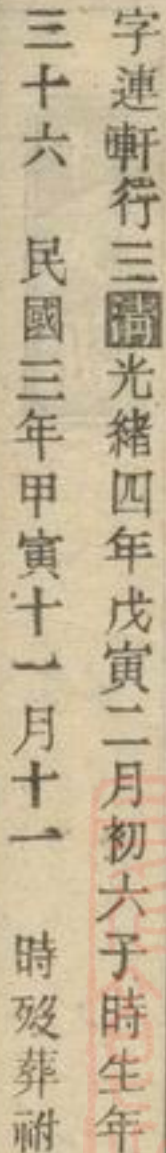 字連軒行三清光緒四年戊寅二月初六子時生年
三十六 民國三年甲寅十一月十一 時歿葬祔